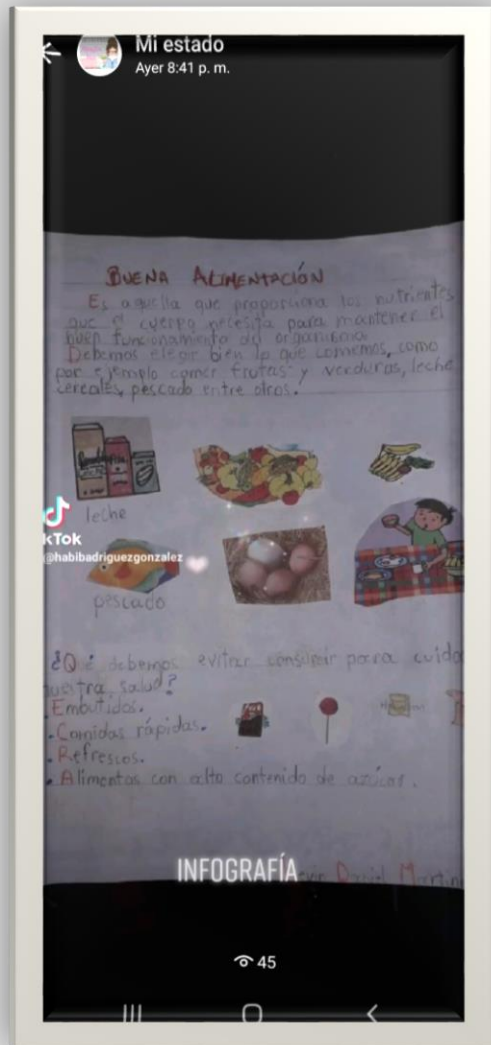 Mi estado
Ayer 8:41 p. m.
BUENA ALIMENTACIÓN
Es aquella que proporciona los nutrientes
que el cuerpo necesita para mantener el
buen funcionamiento del organismo.
Debemos elegir bien lo que comemos, como
por ejemplo comer frutas y verduras, leche
cereales, pescado entre otros.
leche
kTok
@habibadriguezgonzalez
pescado
¿Qué debemos evitar consumir para cuida
nuestra salud?
. Embutidos.
. Comidas rápidas.
. Refrescos.
. Alimentos con alto contenido de azúcar.
INFOGRAFÍA
45